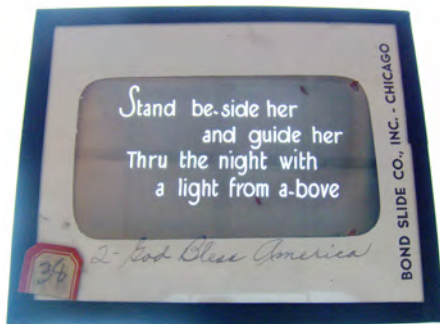 Stand be-side her
and guide her
Thru the night with
a light from a-bove
2- God Bless America
38
BOND SLIDE CO., INC. - CHICAGO